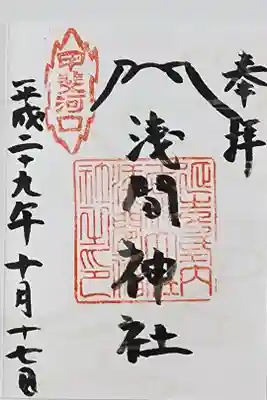 奉拝
浅間神社
甲斐河口
平成二十九年十月十七日